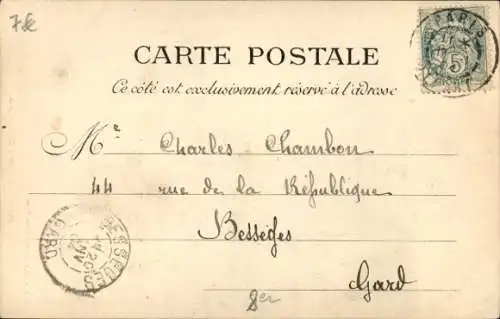 7.€
PARIS
5
CARTE POSTALE
Ce côté est exclusivement réservé à l'adresse
Mr Charles Chambon
44 rue de la République
Bessèges
Gard
BESSEGES
GARD
8er